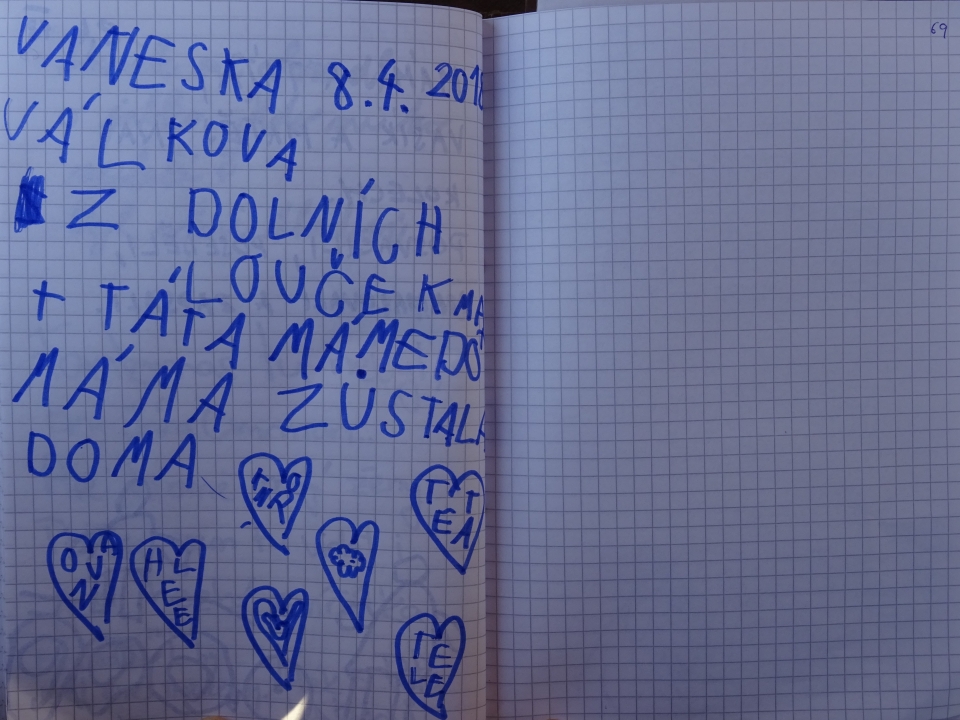 VANESKA 8.4. 2018
VÁLKOVA
Z DOLNÍCH
LOUČEK
+ TÁTA MÁME
MÁMA ZŮSTALA
DOMA
TETA
OVA
HLE
TELE
69